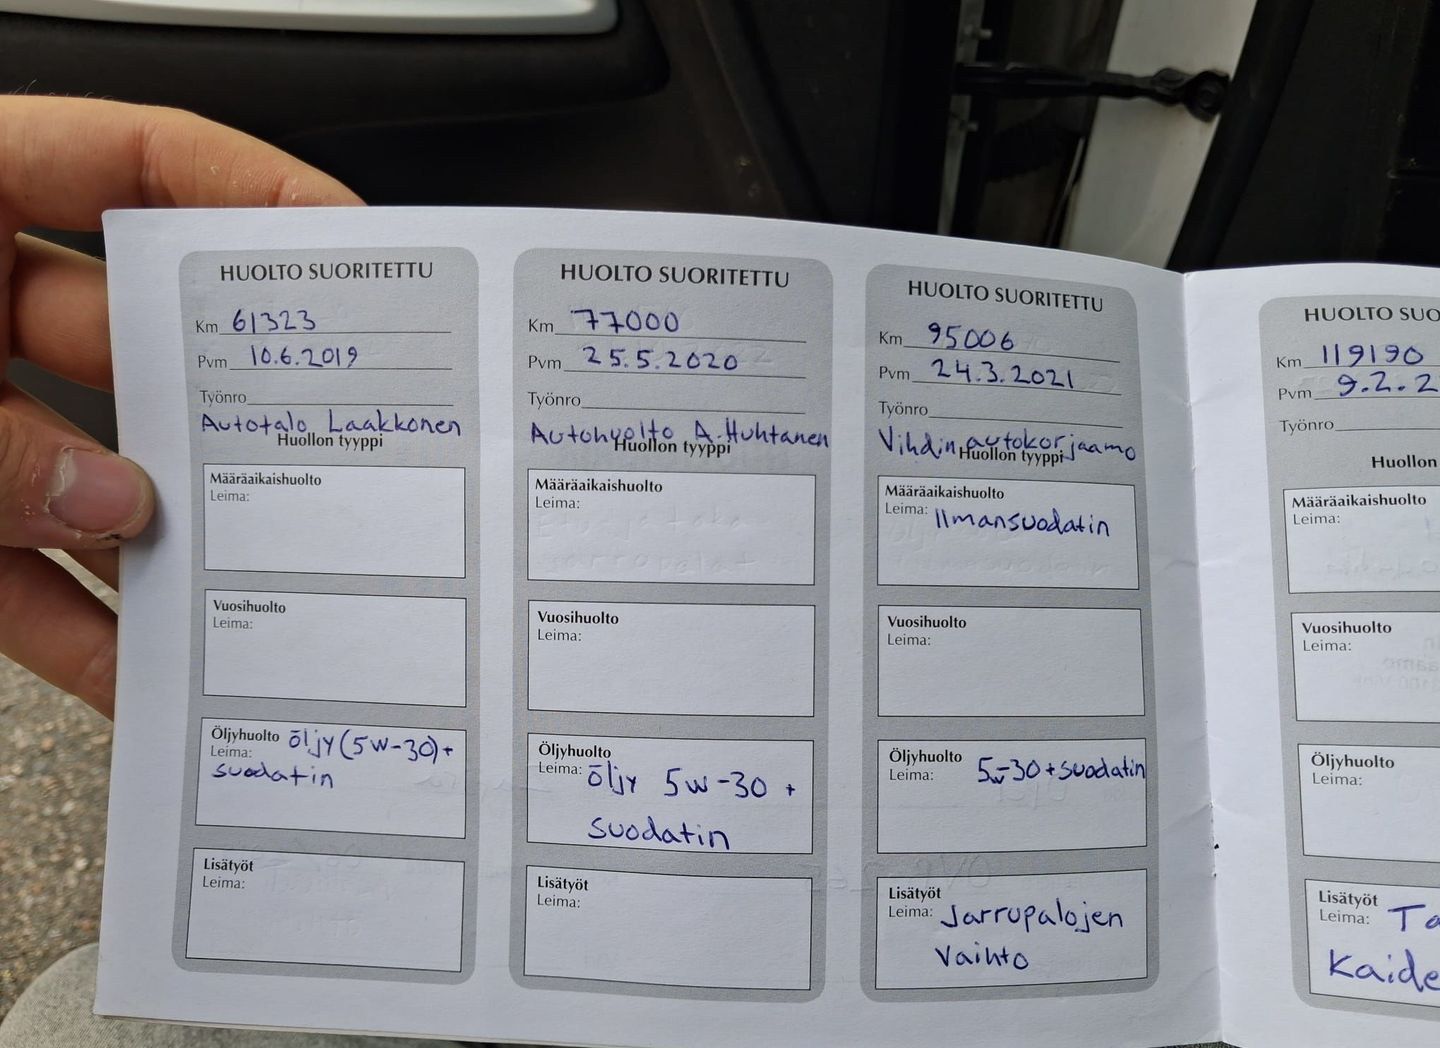 HUOLTO SUORITETTU
Km 61323
Pvm 10.6.2019
Työnro
Autotalo Laakkonen
Huollon tyyppi
Määräaikaishuolto
Leima:
Vuosihuolto
Leima:
Öljyhuolto öljy (5w-30)+
Leima:
suodatin
Lisätyöt
Leima:
HUOLTO SUORITETTU
Km 77000
Pvm 25.5.2020
Työnro
Autohuolto A.Huhtanen
Huollon tyyppi
Määräaikaishuolto
Leima:
Vuosihuolto
Leima:
Öljyhuolto
Leima: öljy 5w-30 +
suodatin
Lisätyöt
Leima:
HUOLTO SUORITETTU
Km 95006
Pvm 24.3.2021
Työnro
Vihdin autokorjaamo
Huollon tyyppi
Määräaikaishuolto
Leima: Ilmansuodatin
Vuosihuolto
Leima:
Öljyhuolto 5w-30+suodatin
Leima:
Lisätyöt
Leima: Jarrupalojen
Vaihto
HUOLTO SUO
Km 119190
Pvm 9.2.2
Työnro
Huollon
Määräaikaishuolto
Leima:
Vuosihuolto
Leima:
Öljyhuolto
Leima:
Lisätyöt
Leima: Ta
Kaide